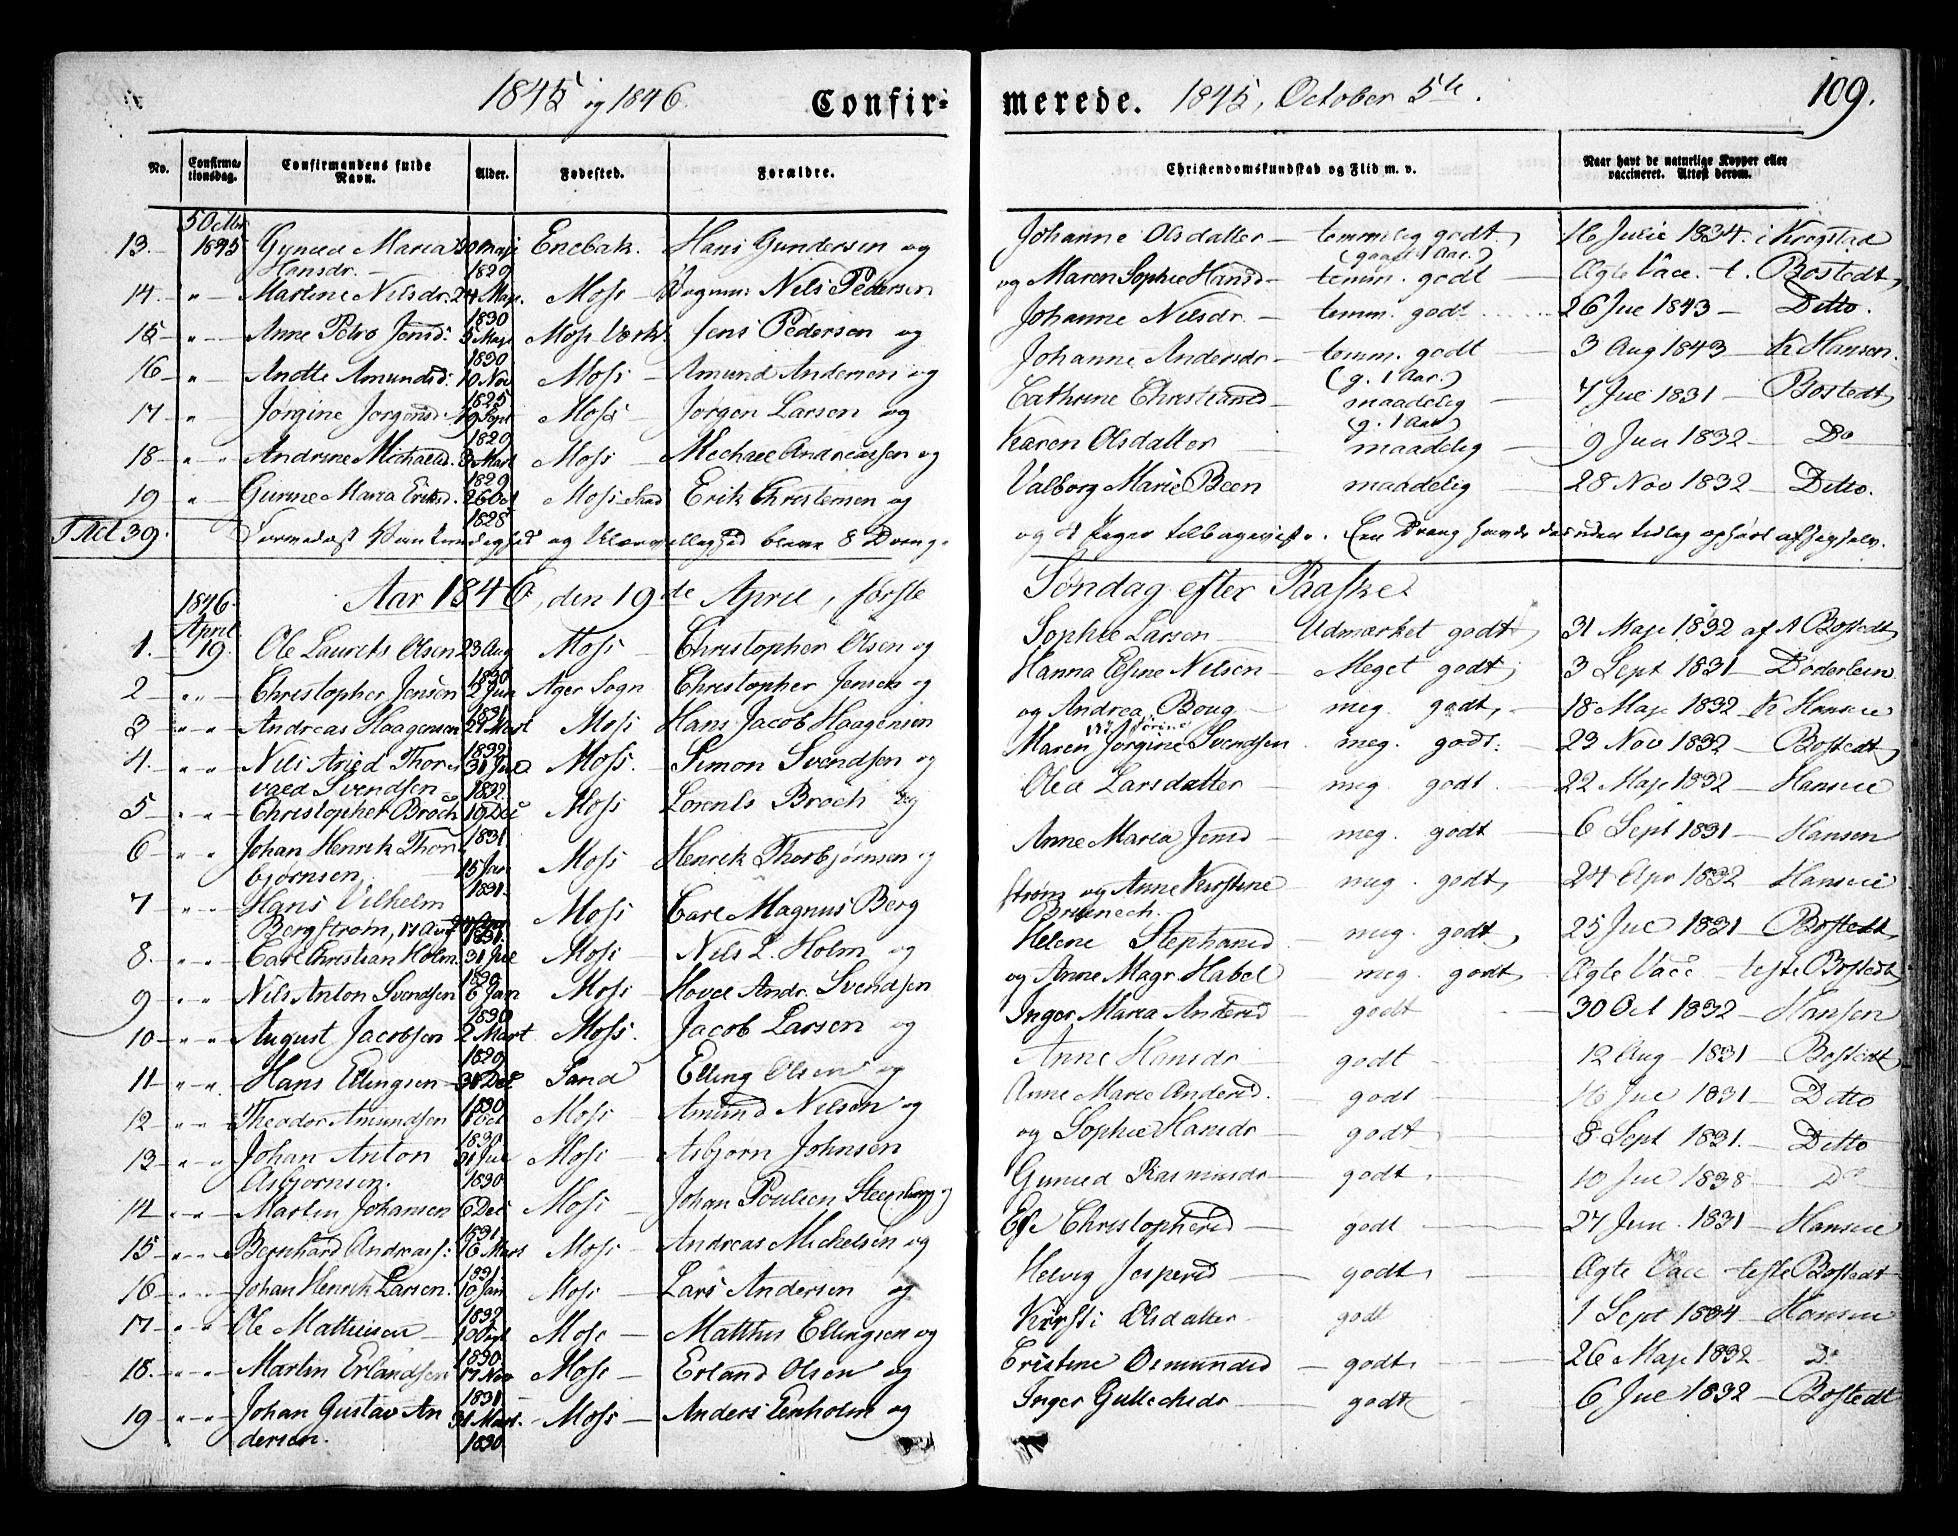 1845 og 1846. Confirmerede. 1845, October 5te. 109.
No. Confirmationsdag. Confirmandens fulde Navn. Alder. Fødested. Forældre. Christendomskundskab og Flid m. v. Naar havt de naturlige Kopper eller vaccineret. Attest derom.
5 Octbr
13. 1845 Maria 20 Maji Enebak. Hans Gundersen og Johanne Olsdatter temmelig godt 16 Julii 1834. i Krogstad
Hansdr. 1829 (gaaet 1 Aar.)
14. " Martine Nilsdr. 24 Maji. Moss Nils Pedersen og Maren Sophie Hansd. temm. godt Ægte Vacc. t. Bostedt
1830
15 " Anne Petro Jensd: 5 Maji Moss Værk. Jens Pedersen og Johanne Nilsdr. temm. godt 26 Jul 1843 Ditto.
1830
16 " Amundsd: 10 Nov Moss Amund Andersen og Johanne Andersdr temm. godt 3 Aug 1843 K Hansen.
1825 (g. 1 Aar.)
17 " Jørgine Jørgensd. 19 Sept Moss Jørgen Larsen og Cathrine Christiansd maadelig 7 Jul 1831 Bostedt
1829 (g. 1 Aar)
18 " " Andrine Michaelsd. 3 Mart Moss Michael Andreassen og Karen Olsdatter maadelig 9 Jun 1832 Do
1829
19 " Gunne Maria Eriksd. 26 Oct Moss Sand Erik Christensen og Valborg Marie Been maadelig 28 Nov 1832 Ditto.
1828
Total 39. Formedelst Vankundighed og bleve 8 Dreng. og Piger tilbageviste. Een Dreng havde desuden tidlig ophørt af sig selv.
Aar 1846, den 19de April, første Søndag efter Paaske.
1846.
April
1. 19. Ole Laurits Olsen 23 Aug Moss Christopher Olsen og Sophie Larsen Udmærket godt 31 Maji 1832 af A Bostedt
1830
2 " " Christopher Jensen 2 Jun Ager Sogn Christopher Jensen og Hanna Elsine Nilsen Meget godt 3 Sept 1831 Døderlein
1831
3 " " Andreas Haagensen 27 Mart Moss Hans Jacob Haagensen og Andrea Boug meg. godt, 18 Maji 1832 K Hansen
1832
4. " " Nils Thor- 31 Jul Moss. Simon Svendsen og Maren Jørgine Svendsen meg. godt. 23 Nov 1832 Bostedt
vald Svendsen 1832.
5 " " Christopher Broch 19 Dec Moss Lorents Broch og Olea Larsdatter meg. godt 22 Maji 1832 Hansen
1831
6 " " Johan Henrik Thor- 15 Jan Moss Henrik Thorbjørnsen og Anne Maria Jensd meg. godt 6 Sept 1831 Hansen
bjørnsen 1831.
7 " " Hans Vilhelm Moss Carl Magnus Berg- strøm og Anne Kirstine meg. godt 24 Apr 1832 Hansen
Bergstrøm, 17 Aug 1831. Brunech.
8. " " Carl Christian Holm. 31 Jul Moss Nils L. Holm og Helene Stephansd meg. godt 25 Jul 1831 Bostedt
1830
9 " " Nils Anton Svendsen 6 Jan Moss Hovel Andr. Svendsen og Anne Magr. Habel meg. godt Ægte Vacc teste Bostedt
1830
10 " " August Jacobsen 2 Mart Moss. Jacob Larsen og Inger Maria Andersd godt 30 Oct 1832 Hansen
1829
11 " " Hans Ellingsen 31 Dec Sand Elling Olsen og Anne Hansdr godt 12 Aug 1831 Bostedt
1830
12 " " Theodor Amundsen Oct Moss Amund Nilsen og Anne Marie Andersd. godt 16 Jul 1831 Ditto
1830
13 " " Johan Anton 31 Jul Moss Asbjørn Johnsen og Sophie Hansdr godt 8 Sept 1831. Ditto
Asbjørnsen. 1830
14 " " Martin Johansen 6 Dec Moss Johan Poulsen Steenberg og Rasmusdr godt 10 Jul 1838 Do
1831
15 " " Bernhard Andreass: 16 Mart Moss Andreas Mickelsen og Christophersd godt 27 Jun. 1831 Hansen
1831
16 " " Johan Henrik Larsen. 10 Jan Moss Lars Andersen og Helvig Jespersd godt Ægte Vacc teste Bostedt
1832
17 " " Ole Mathiesen 10 Moss Matthis Ellingsen og Kirsti Olsdatter godt 1 Sept 1834 Hansen
1830
18. " " Martin Erlandsen 17 Nov Moss Erland Olsen og Cristine Osmundsd godt 26 Maji 1832 Do
1831
19 " " Johan Gustav An- 31 Mart. Moss Anders Eenholm og Inger Gullechsdr godt 6 Jul 1832 Bostedt
dersen. 1830